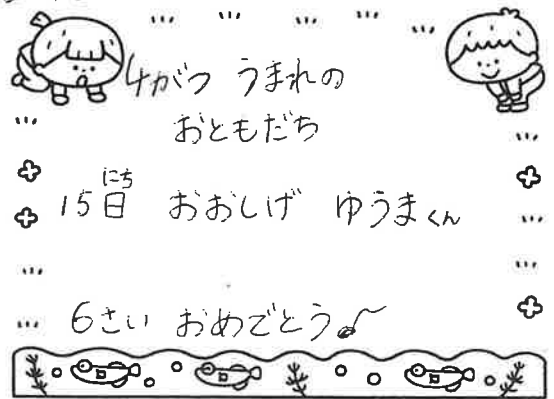 4がつ うまれの
おともだち
15日 おおしげ ゆうまくん
にち
6さい おめでとう♪